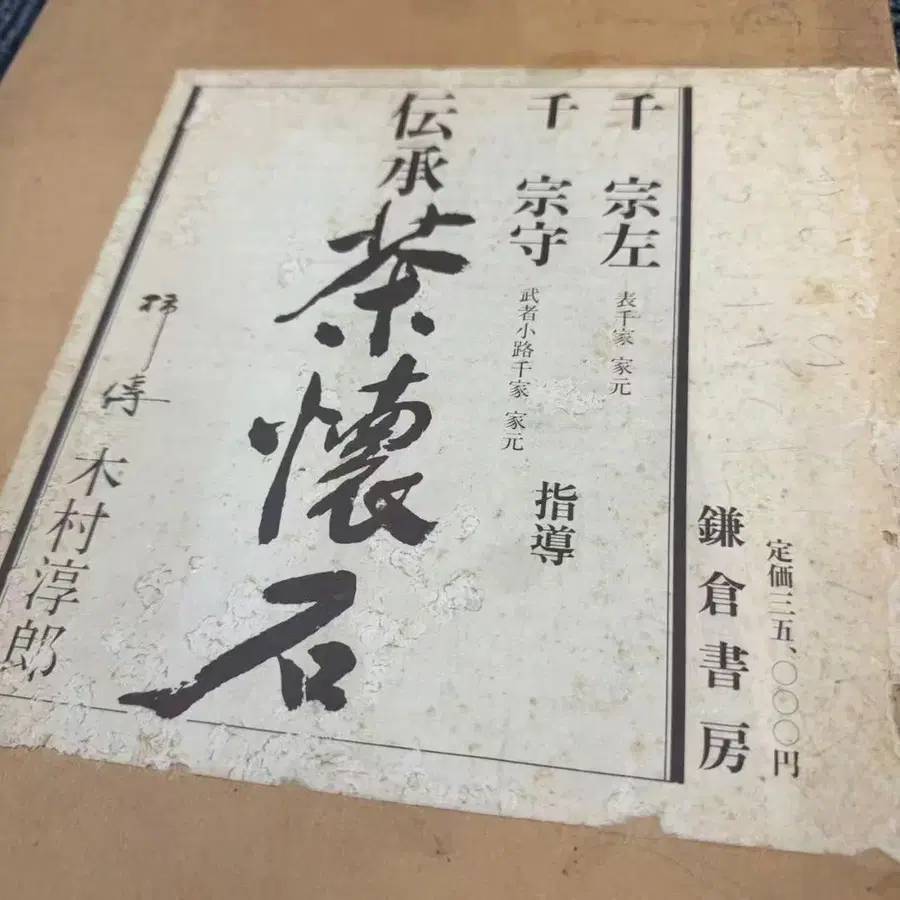 定価三五、〇〇〇円
鎌倉書房
千 宗左 表千家 家元
千 宗守 武者小路千家 家元
指導
伝承
茶懐石
柿傳 木村淳郎